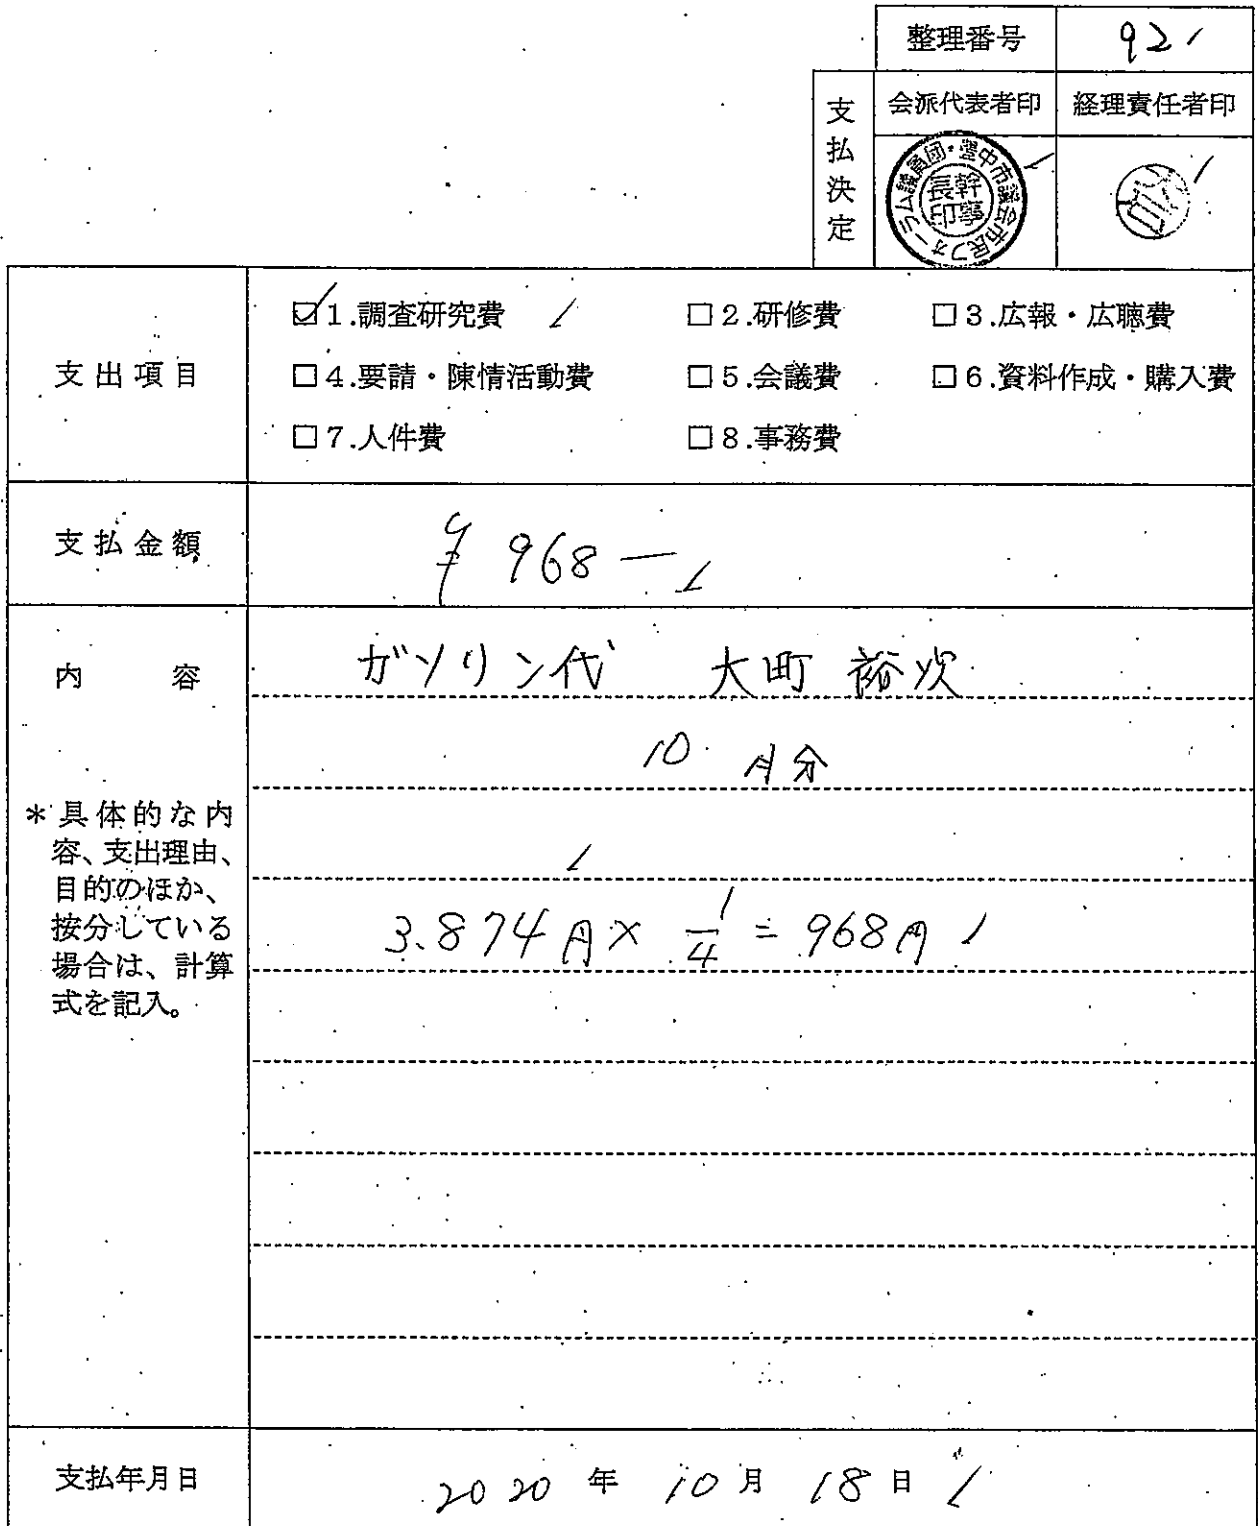 整理番号 92
支払決定 会派代表者印 経理責任者印
豊中市議会市民フォーラム議員団・
幹事長印
支出項目
☑1.調査研究費 □2.研修費 □3.広報・広聴費
□4.要請・陳情活動費 □5.会議費 □6.資料作成・購入費
□7.人件費 □8.事務費
支払金額 ¥968―
内容 ガソリン代 大町 裕次
10月分
*具体的な内
容、支出理由、
目的のほか、
按分している
場合は、計算
式を記入。
3.874円×1/4=968円
支払年月日 2020年10月18日